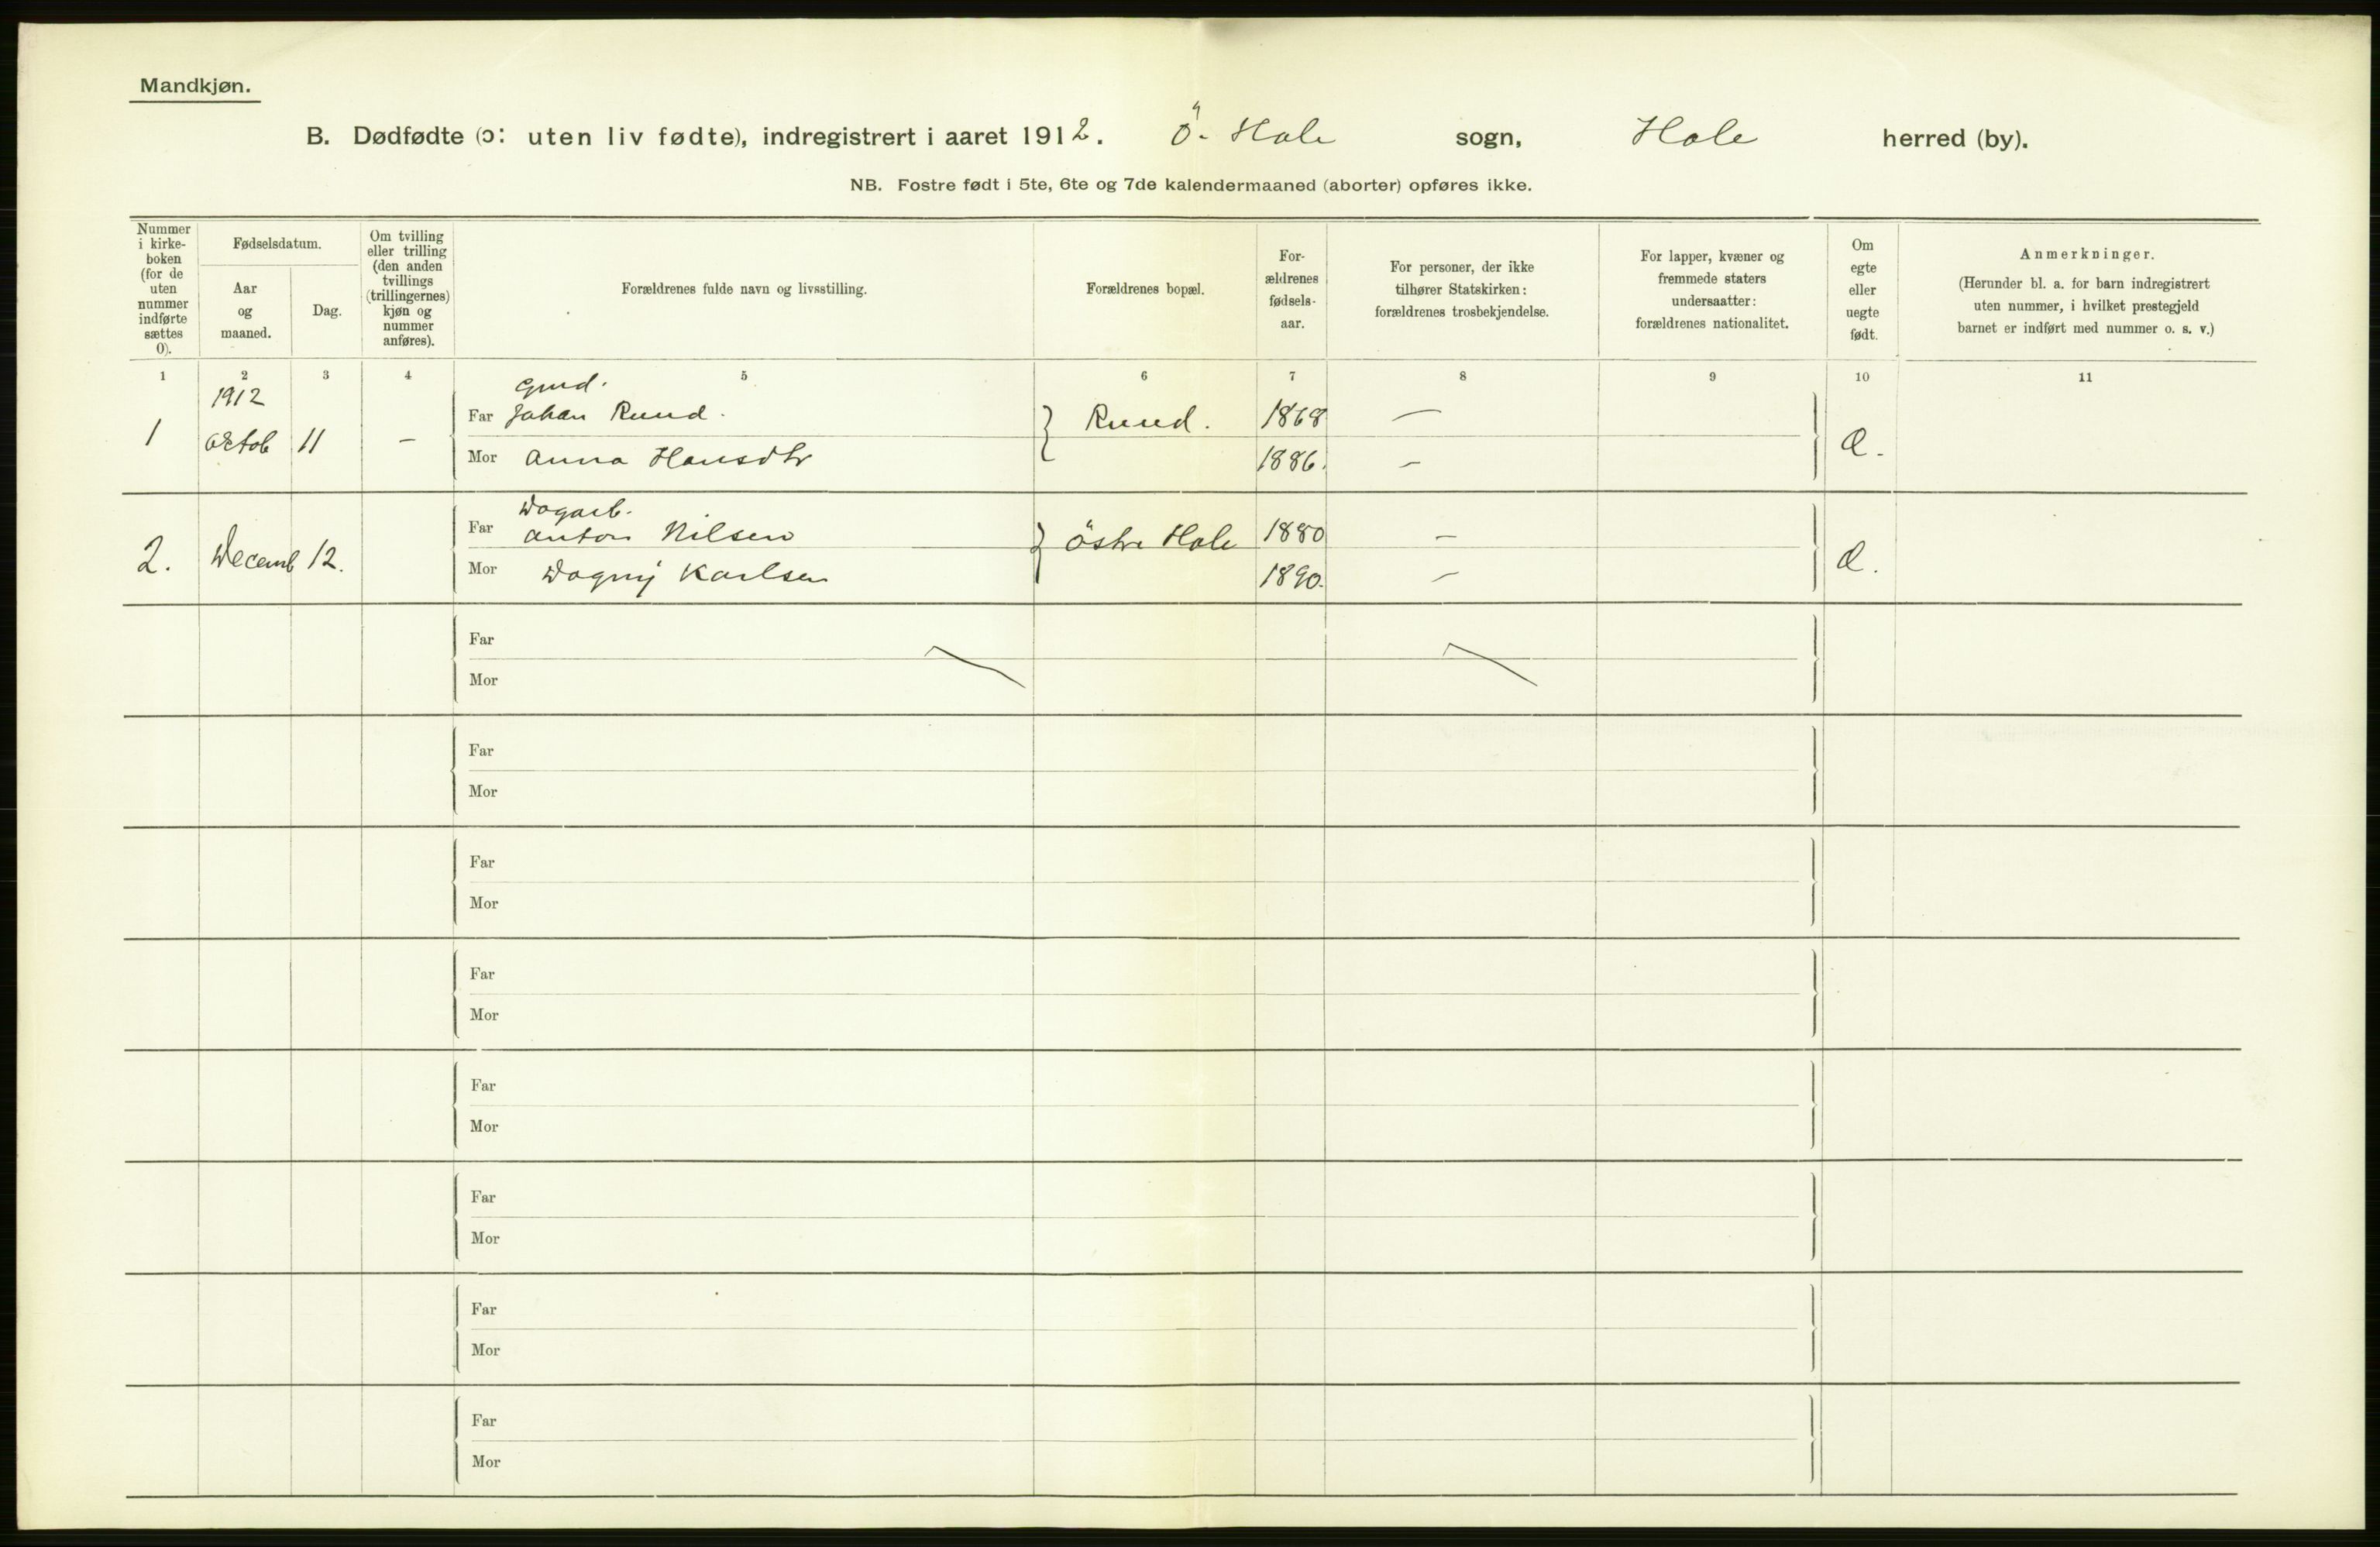 Mandkjøn.
B. Dødfødte (ɔ: uten liv fødte), indregistrert i aaret 1912. Ö. Hole sogn, Hole herred (by).
NB. Fostre født i 5te, 6te og 7de kalendermaaned (aborter) opføres ikke.
Nummer
i kirke-
boken
(for de
uten
nummer
indførte
sættes
0).
Fødselsdatum.
Aar
og
maaned.
Dag.
Om tvilling
eller trilling
(den anden
tvillings
(trillingernes)
kjøn og
nummer
anføres).
Forældrenes fulde navn og livsstilling.
Forældrenes bopæl.
For-
ældrenes
fødsels-
aar.
For personer, der ikke
tilhører Statskirken:
forældrenes trosbekjendelse.
For lapper, kvæner og
fremmede staters
undersaatter:
forældrenes nationalitet.
Om
egte
eller
uegte
født.
Anmerkninger.
(Herunder bl. a. for barn indregistrert
uten nummer, i hvilket prestegjeld
barnet er indført med nummer o. s. v.)
1 2 3 4 5 6 7 8 9 10 11
1912
Gmd.
Far Johan Ruud. Ruud. 1868 —
1 Octob 11 —
Mor Anna Hansdtr 1886. —
Dagarb.
Far Anton Nilsen Östre Hole 1880 —
2. Decemb 12.
Mor Dagny Karlsen 1890. —
Far
Mor
Far
Mor
Far
Mor
Far
Mor
Far
Mor
Far
Mor
Far
Mor
Far
Mor